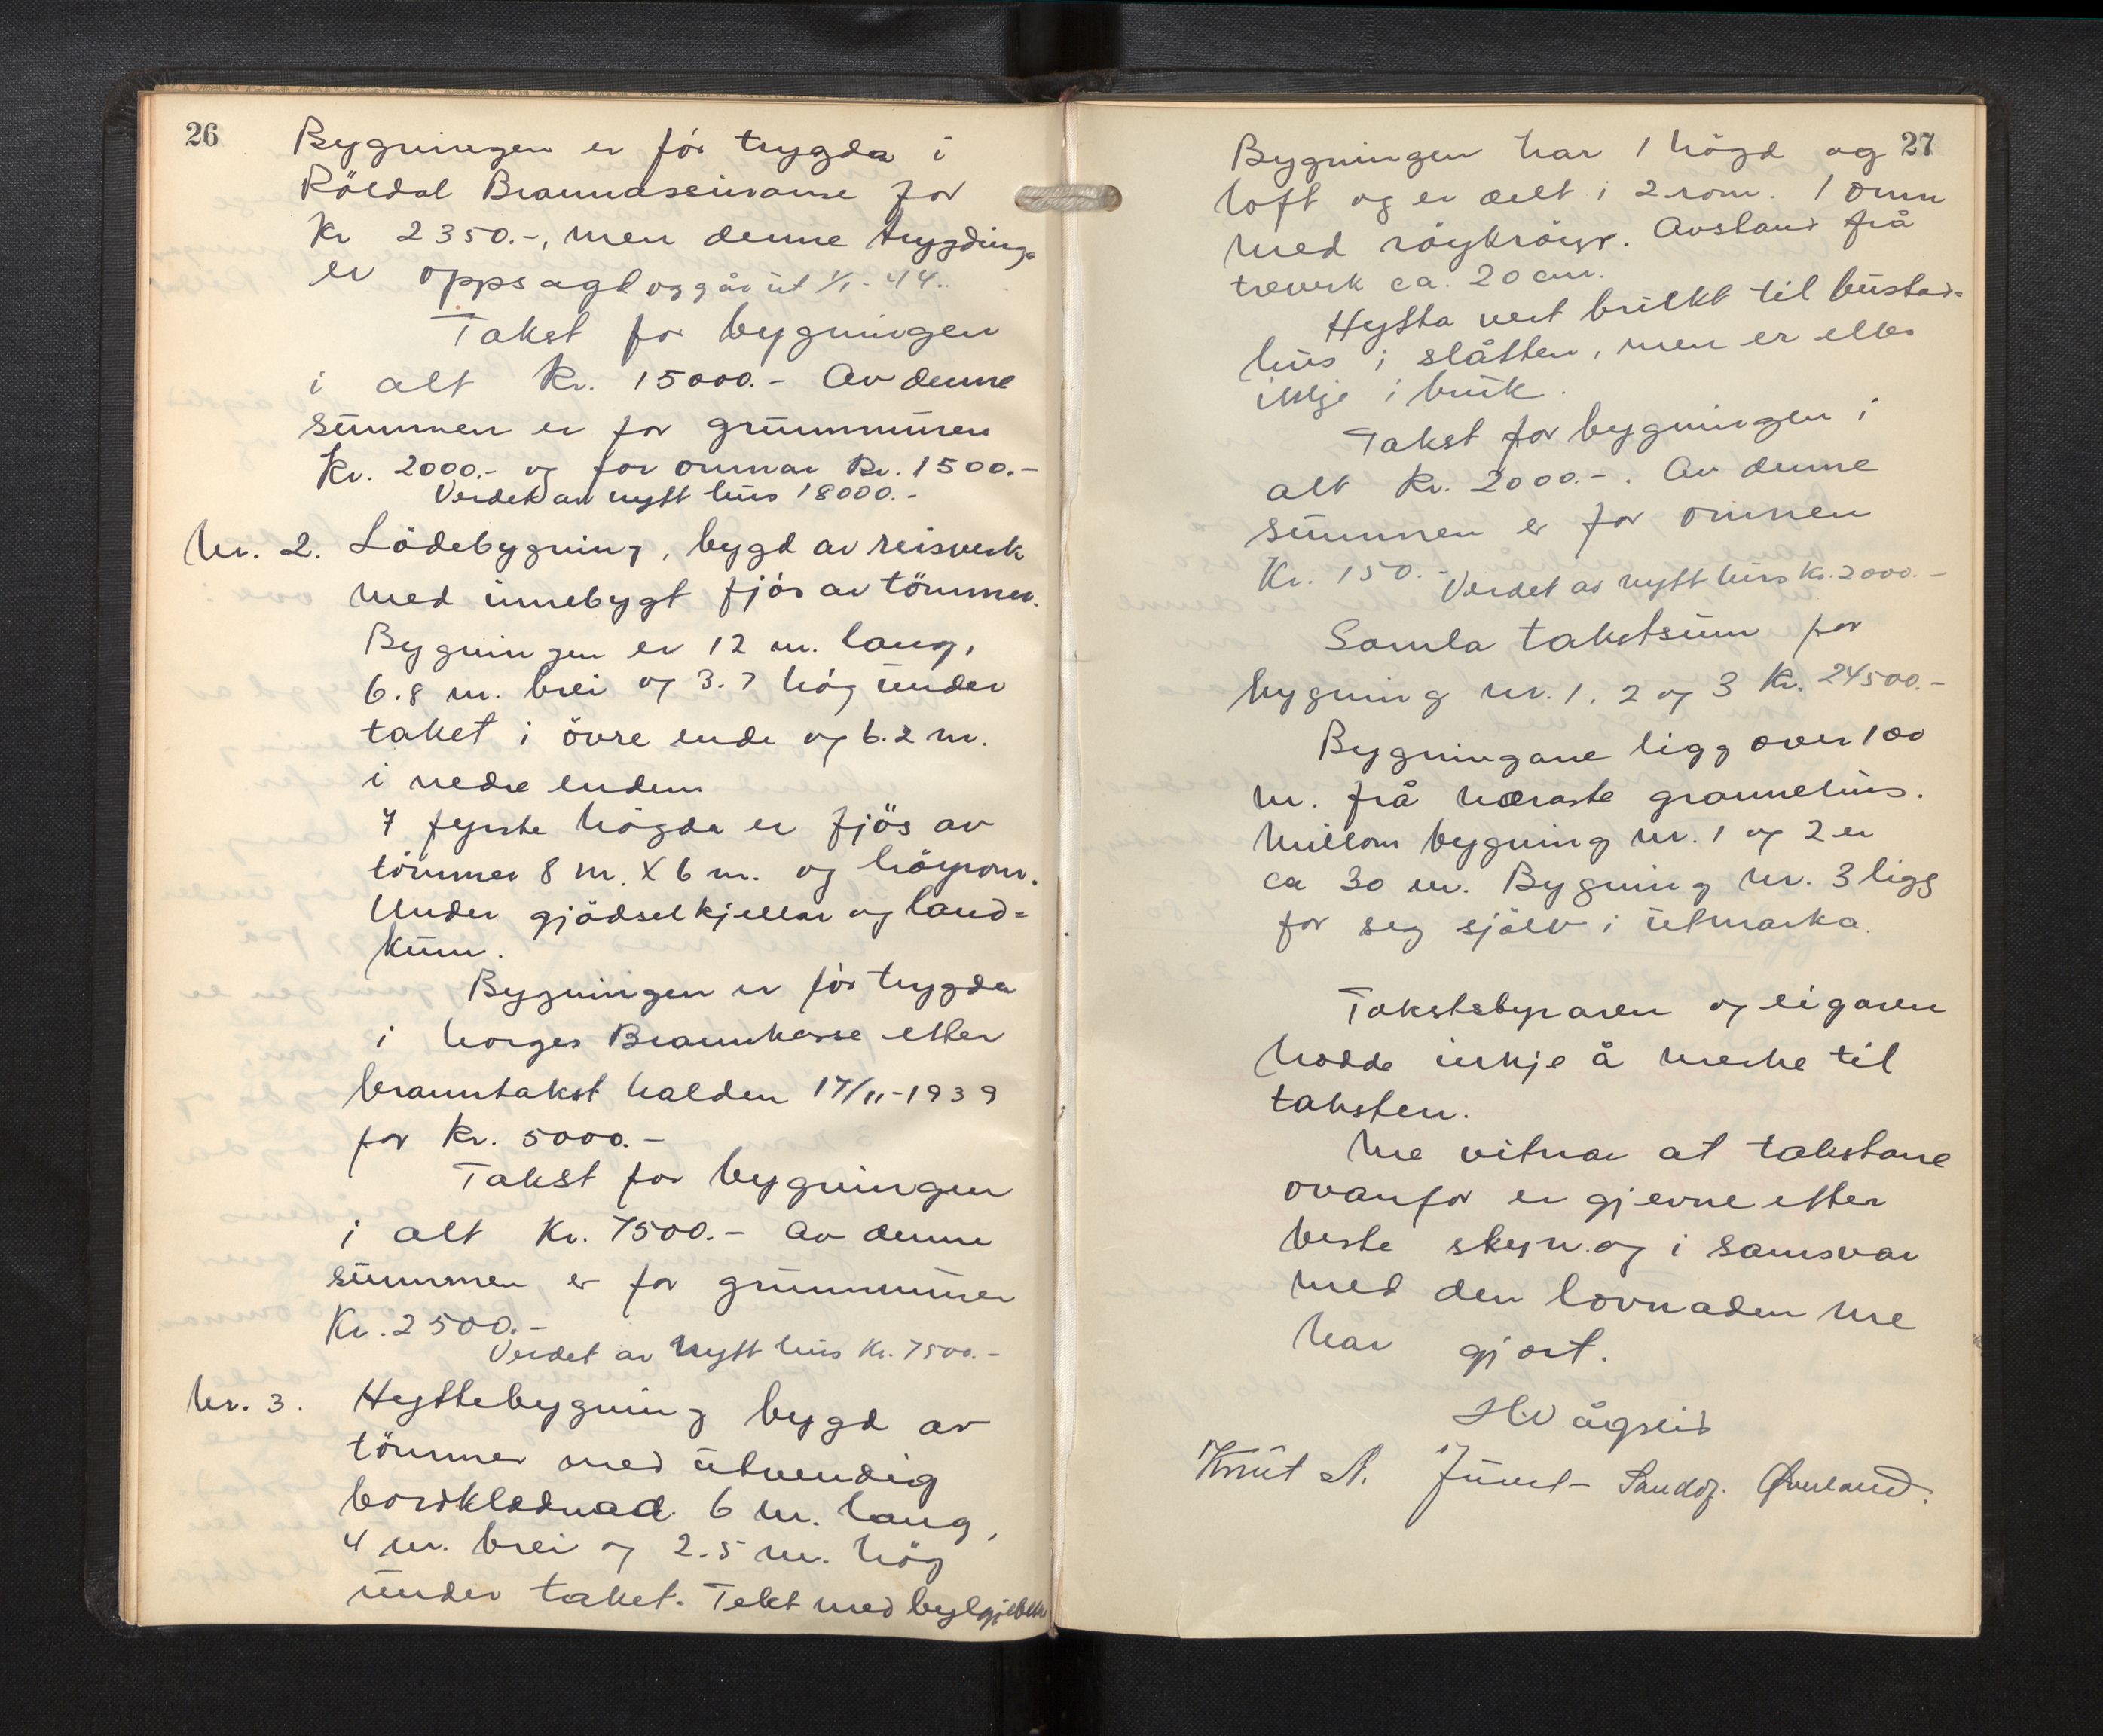 26
Bygningen er før trygda i
Röldal Brannassuranse for
Kr 2350.-, men denne trygding
er oppsagt og går ut 1/1-44.
Takst for bygningen
i alt Kr. 15000.- Av denne
summen er for grunnmuren
Kr. 2000.- og for omnar Kr. 1500.-
Verdet av nytt hus 18000.-
Nr. 2. Lödebygning, bygd av reisverk
med innebygt fjös av tömmer.
Bygningen er 12 m. lang,
6.8 m. brei og 3.7 hög under
taket i övre ende og 6.2 m.
i nedre enden.
I fyrste högda er fjös av
tömmer 8 m. X 6 m. og höyrom.
Under gjödselkjellar og land=
kum.
Bygningen er för trygda
i Norges Brannkasse etter
branntakst halden 17/11-1939
for Kr. 5000.-
Takst for bygningen
i alt Kr. 7500.- Av denne
summen er for grunnmuren
Kr. 2500.-
Verdet av nytt hus Kr. 7500.-
Nr. 3. Hyttebygning bygd av
tömmer med utvendig
bordklædnad. 6 m. lang,
4 m. brei og 2.5 m. hög
under taket. Tekt med bylgjeblikk
27
Bygningen har 1 högd og
loft og er delt i 2 rom. 1 omn
med röykröyr. Avstand frå
treverk ca. 20 cm.
Hytta vert brukt til bustad=
hus i slåtten, men er elles
ikkje i bruk.
Takst for bygningen i
alt Kr. 2000.-. Av denne
summen er for omnen
Kr. 150.- Verdet av nytt hus Kr. 2000.-
Samla takstsum for
bygning nr. 1, 2 og 3 Kr. 24500.-
Bygningane ligg over 100
m. frå næraste grannehus.
Millom bygning nr. 1 og 2 er
ca 30 m. Bygning nr. 3 ligg
for seg sjölv i utmarka.
Takstsbyraren og eigaren
hadde inkje å merke til
taksten.
Me vitnar at takstane
ovanfor er gjevne etter
beste skyn og i samsvar
med den lovnaden me
har gjort.
H. Vågslid
Knut A. Juvet- Sandof. Øverland.